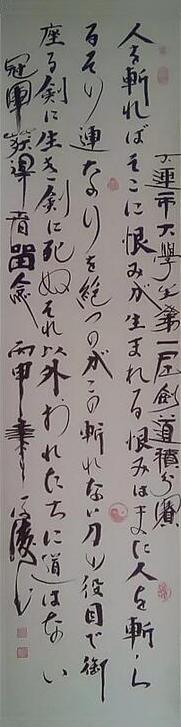 大連市大學生第一屆劍道積分賽
人を斬ればそこに恨みが生まれる恨みはまた人を斬ら
その連なりを絶つのがこの斬れない刀の役目で御
座る剣に生き剣に死ぬそれ以外おれたちに道はない
冠軍 留念 丙申年